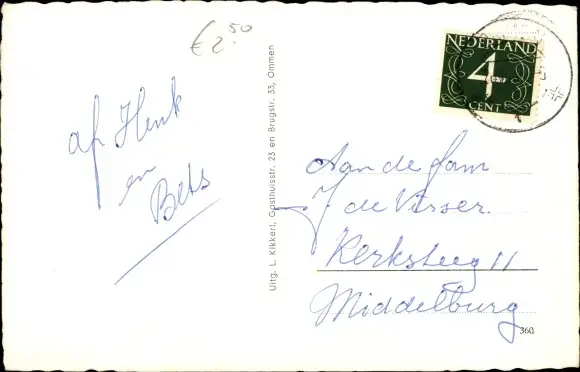 € 2.50
af Henk
en
Bets
Uitg. L. Kikkert, Gasthuisstr. 23 en Brugstr. 33, Ommen
NEDERLAND
4
CENT
Aan de fam
J de Visser.
Kerksteeg 11
Middelburg
360